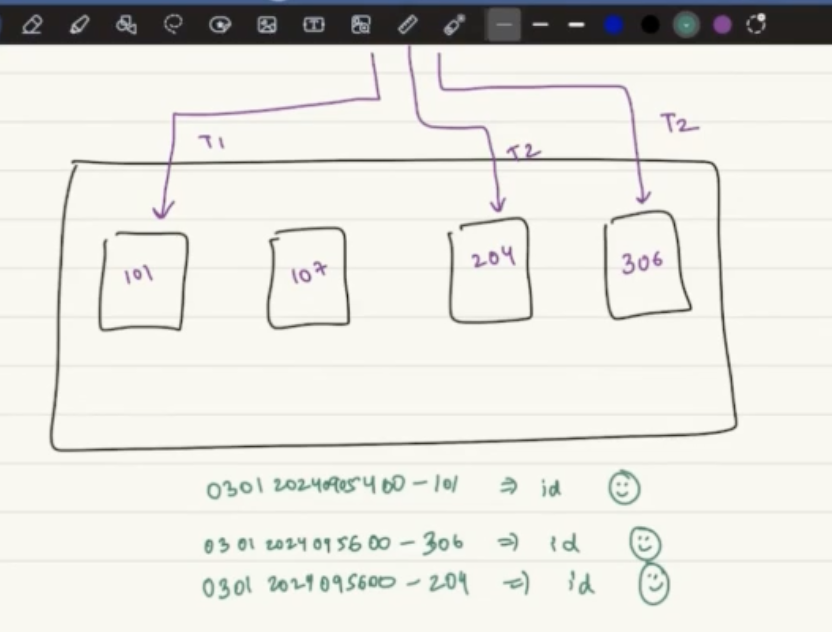 T1
T2
T2
101
107
204
306
0301 20240905400-101 ⇒ id
0301 2024095600-306 ⇒ id
0301 2029095600-204 ⇒ id